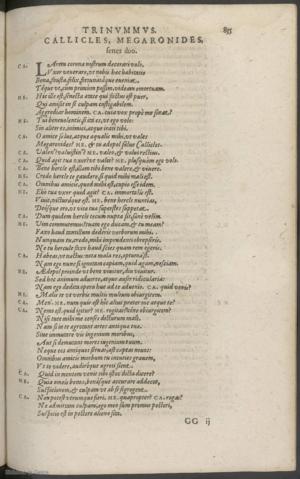 TRINVMMVS. 85
CALLICLES, MEGARONIDES,
senes duo.
CA. LArem corona nostrum decorari volo,
Vxor venerare, vt nobis hæc habitatio
Bona, fausta, felix, fortunatáque eueniat.
Téque vt, cum primùm possim, videam emortuam.
ME. Hic ille est, senecta ætate qui factus est puer,
Qui amisit in se culpam castigabilem.
Aggrediar hominem. CA. cuia vox propè me sonat?
ME. Tui beneuolentis si ita es, vt ego volo:
Sin aliter es, inimici, atque irati tibi.
CA. O amice salue, atque æqualis mihi, vt vales
Megaronides? ME. & tu ædepol salue Callicles.
CA. Valen'? valuistin'? ME. valeo, & valui rectius.
CA. Quid agit tua vxor? vt valet? ME. plusquàm ego volo.
CA. Bene hercle est illam tibi bene valere, & viuere.
ME. Credo hercle te gaudere, si quid mihi mali est.
CA. Omnibus amicis, quod mihi est, cupio esse idem.
ME. Eho tua vxor quid agit? CA. immortalis est.
Viuit, victuráque est. ME. bene hercle nuntias,
Deósque oro, vt vitæ tuæ superstes suppetat.
CA. Dum quidem hercle tecum nupta sit, sanè velim.
ME. Vin commutemus? tuam ego ducam, & tu meam?
Faxo haud tantillum dederis verborum mihi.
CA. Nanque enim tu, credo, mihi imprudenti obrepseris.
ME. Næ tu hercle faxo haud scias quam rem egeris.
CA. Habeas, vt nactus: nota mala res, optuma est.
Nam ego nunc si ignotam capiam, quid agam, nesciam.
ME. Aedepol proinde vt bene viuitur, diu viuitur.
Sed hoc animum aduorte, atque aufer ridicularia:
Nam ego dedita opera huc ad te aduenio. CA. quid venis?
ME. Malis te vt verbis multis multum obiurigem.
CA. Men'. ME. num quis est hîc alius præter me atque te?
CA. Nemo est. quid igitur? ME. rogitas téne obiurigem?
Nisi tute mihi me censes dicturum male.
Nam si in te ægrotant artes antiquæ tuæ.
Siue immutare vis ingenium moribus,
Aut si demutant mores ingenium tuum,
Neque eos antiquos seruas, ast captas nouos:
Omnibus amicis morbum tu incuties grauem,
Vt te videre, audiréque ægroti sient.
CA. Quid in mentem venit tibi istæc dicta dicere?
ME. Quia omnis bonos, bonásque accurare addecet,
Suspicionem, & culpam vt ab se segregent.
CA. Non potest vtrunque fieri. ME. quapropter? CA. rogas?
Ne admittam culpam, ego meo sum promus pectori,
Suspicio est in pectore alieno sita.
GG ij